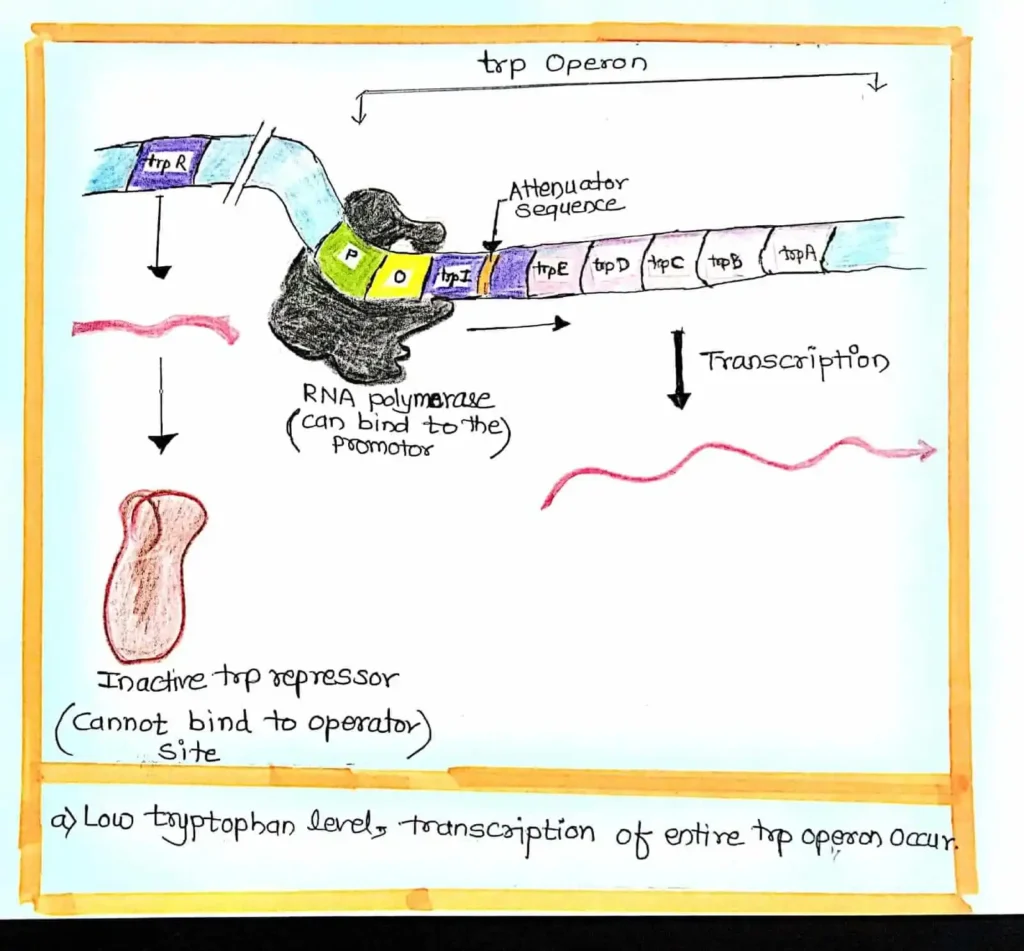 trp Operon
trp R
Attenuator
sequence
P
O
trpI
trpE
trpD
trpC
trpB
trpA
Transcription
RNA polymerase
(can bind to the)
promotor
Inactive trp repressor
(Cannot bind to operator)
Site
a) Low tryptophan levels, transcription of entire trp operon occur.